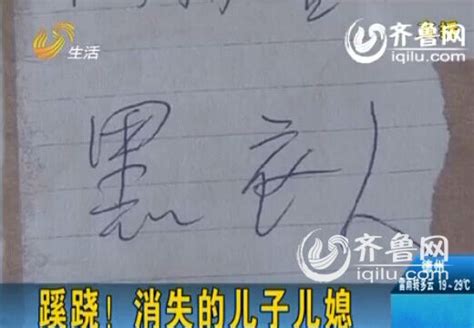 生活
齐鲁网
iqilu.com
黑衣人
齐鲁网
iqilu.com
德州
雷雨转多云 19~29℃
蹊跷！消失的儿子儿媳